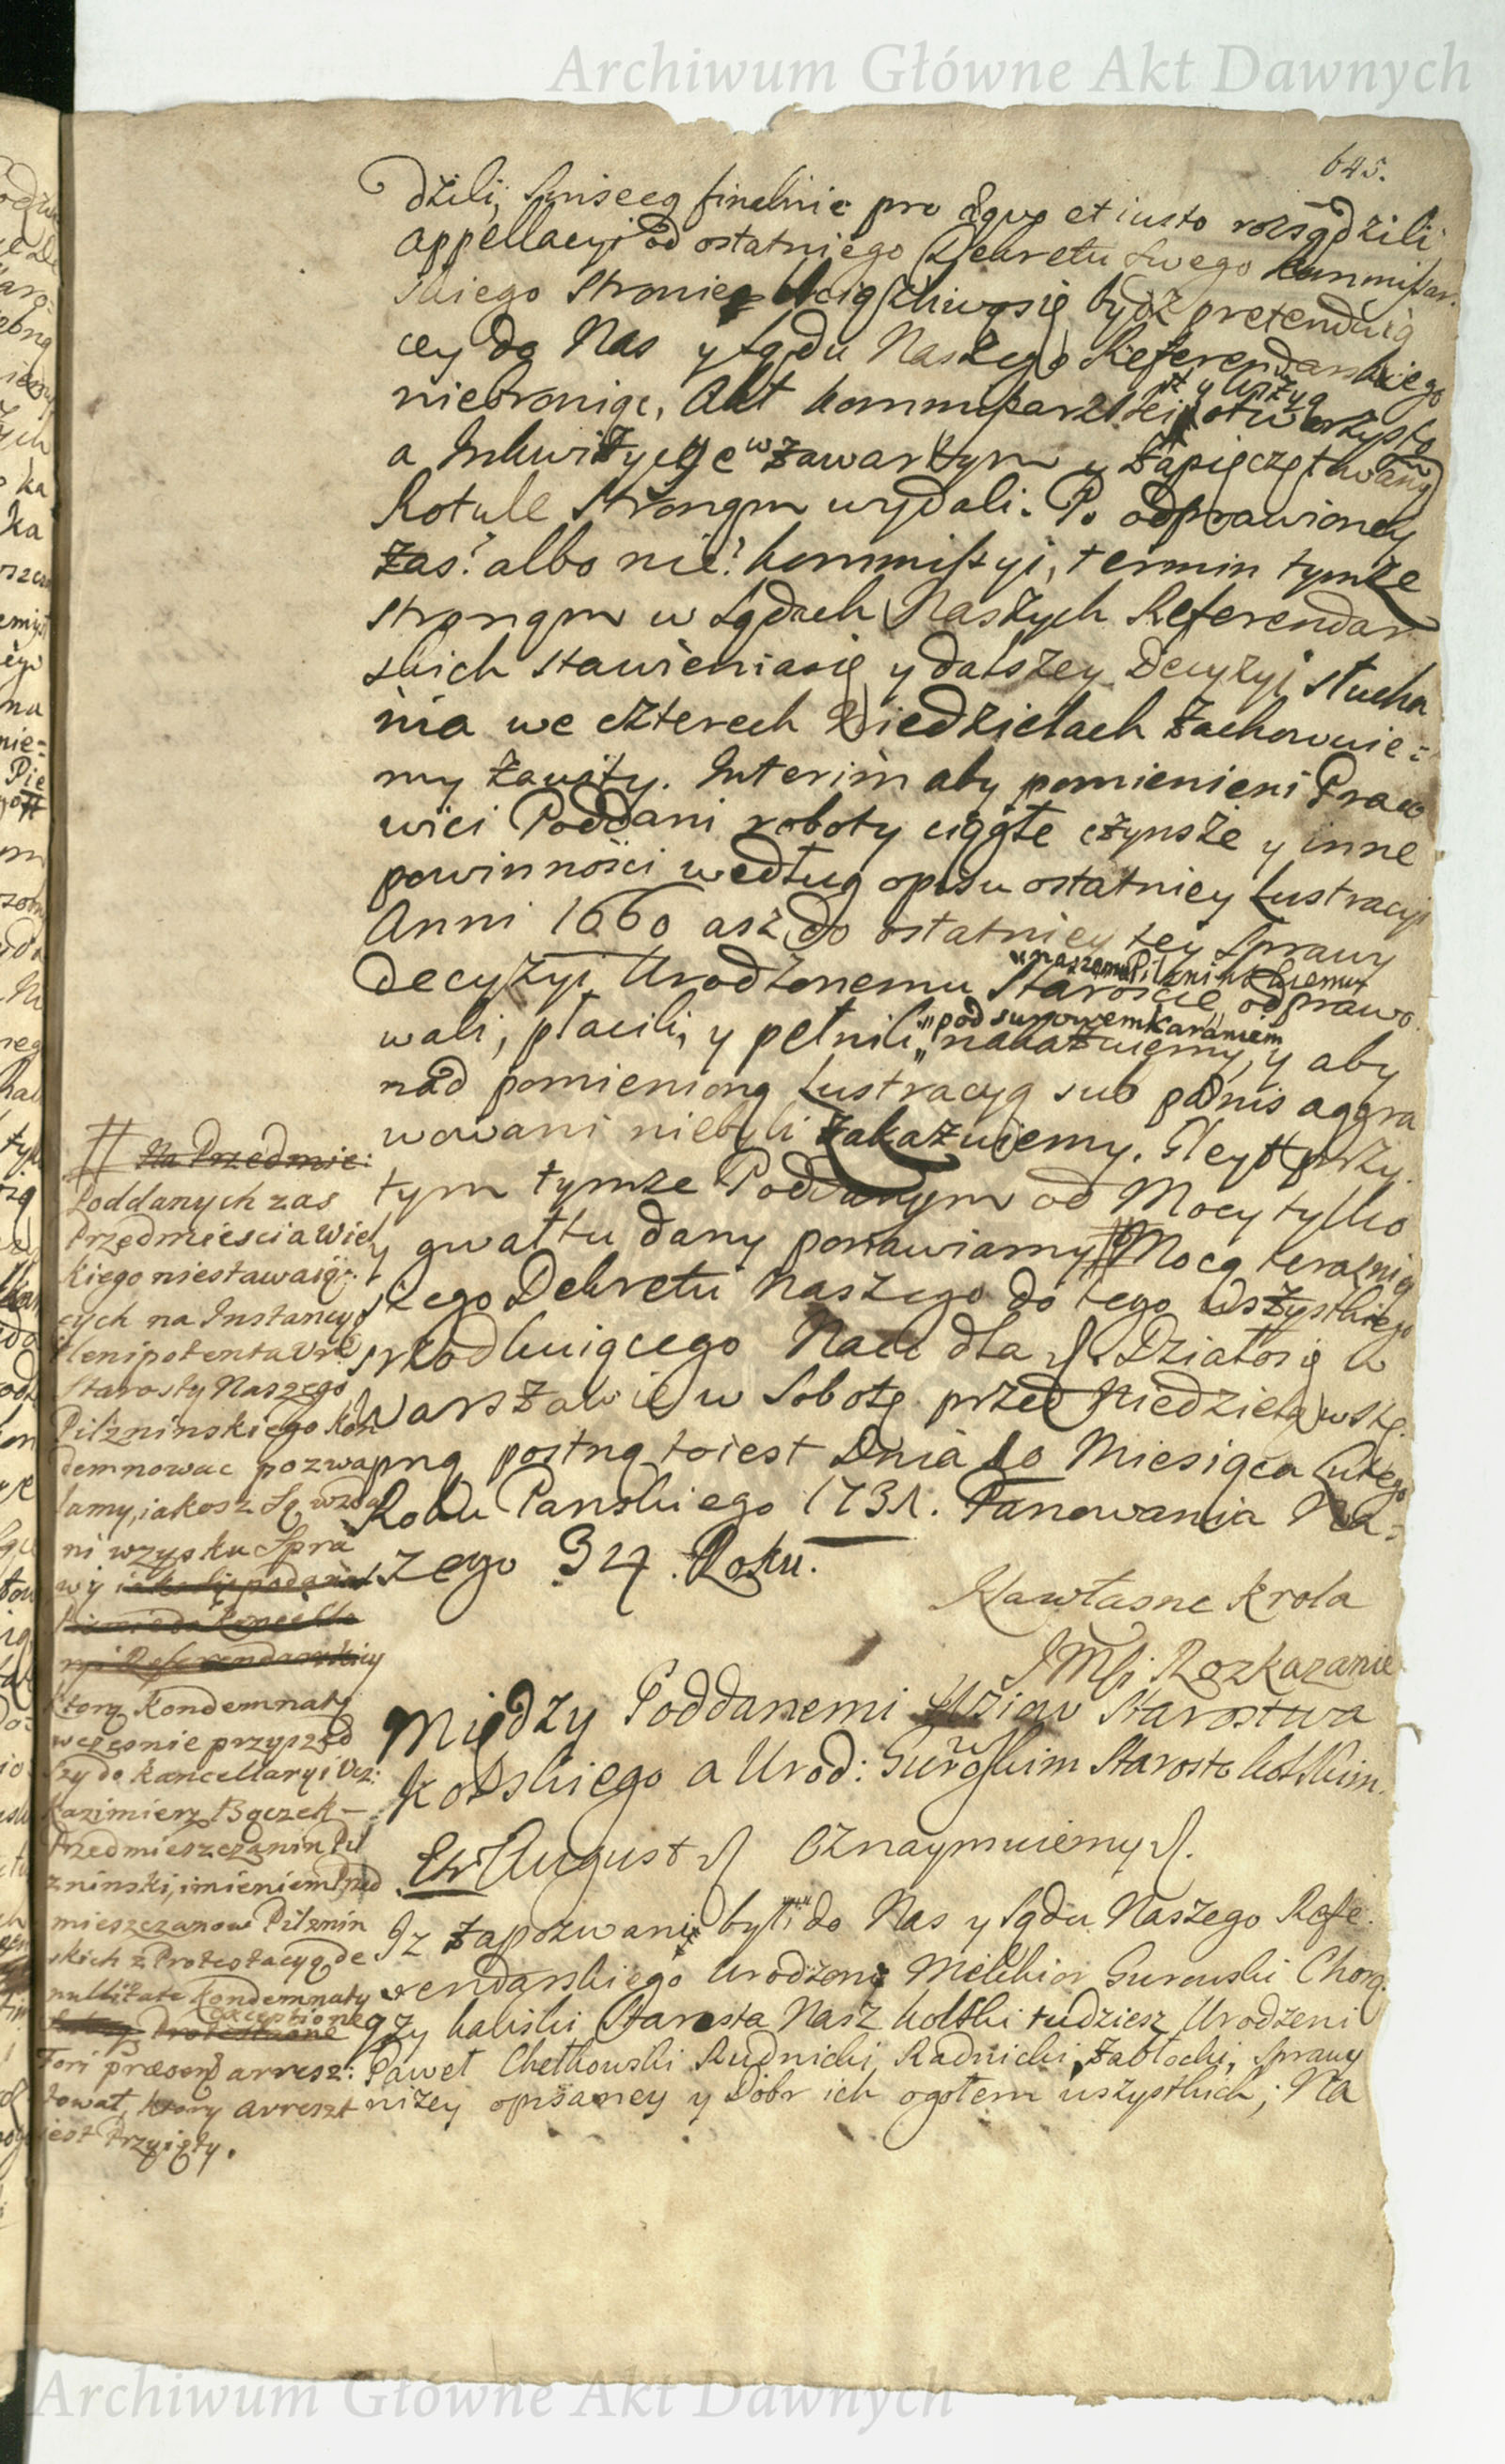 Archiwum Główne Akt Dawnych
645.
dzili, finalnie pro et iusto rozsądzili
appellacyi od ostatniego Dekretu swego kommissar
skiego Stronie bydz pretenduią
cey do Nas y Sądu Naszego Referendarskiego
niebroniąc, Akt kommissarski otworzysty
a Inkwizycye w zawartym y zapieczętowanÿ
Rotule Stronom wydali. Po odprawioney
zas? albo nie? kommissyi, termin tymze
stronom w Sądach Naszych Referendar
skich stawieniasię y dalszey Decyzyi słucha
nia we czterech Niedzielach zachowuie=
my zawity. Interim aby pomienieni Praco
wici Poddani roboty ciągłe czynsze y inne
powinności według opisu ostatniey Lustracyi
Anni 1660 asz do ostatniey tey Sprawy
"naszemu Pilzninskiemu
decyzyi, Urodzonemu Staroscie odprawo
"pod surowem karaniem
wali, płacili, y pełnili "nakazuiemy, y aby
nad pomienioną Lustracyą sub pœnis aggra
wowani niebyli zakazuiemy. Gleyt przy
tym tymze Poddanym od Mocy tylko
y gwałtu dany ponawiamy # Mocą terazniey
szego Dekretu naszego do tego wszystkiego
Nam dla Działosię w
Warszawie w Sobotę przed Niedzielą wstę
pną postną toiest Dnia 10 Miesiąca Lutego
Roku Panskiego 1731. Panowania Na=
szego 34. Roku.
Nawłasne Krola
JMsci Rozkazanie
# Na Przedmie:
Poddanych zas
Przedmiescia Wiel
kiego niestawaią:
cych na Instancyą
Plenipotenta Ur:
Starosty Naszego
Pilzninskiego kon
demnowac pozwa
lamy, iakosz Są wzda
ni w zysku Spra
wy
Referendarskiey
ktorą Kondemnatę
wczesnie przyszed
szy do kancellaryi Ucz:
Kazimierz Bączek
Przedmieszczanin Pil
zninski, imieniem Przed
mieszczanow Pilznin
skich z Protestacyą de
nullitate Kondemnaty
exceptione
Fori præsenti arresz:
tował, ktory arreszt
iest Przyięty.
Między Poddanemi Starostwa
Kolskiego a Urod: Gurowskim Starostą kolskim.
August Oznaymuiemy
Iz zapozwani byli do Nas y Sądu Naszego Refe
rendarskiego Urodzeni Melchior Gurowski Chorą
ży kaliski Starosta Nasz kolski tudziesz Urodzeni
Paweł Chełkowski Rudnicki, Radnicki, Zabłocki, Sprawy
nizey opisaney y Dobr ich ogołem wszystkich; Na
Archiwum Główne Akt Dawnych